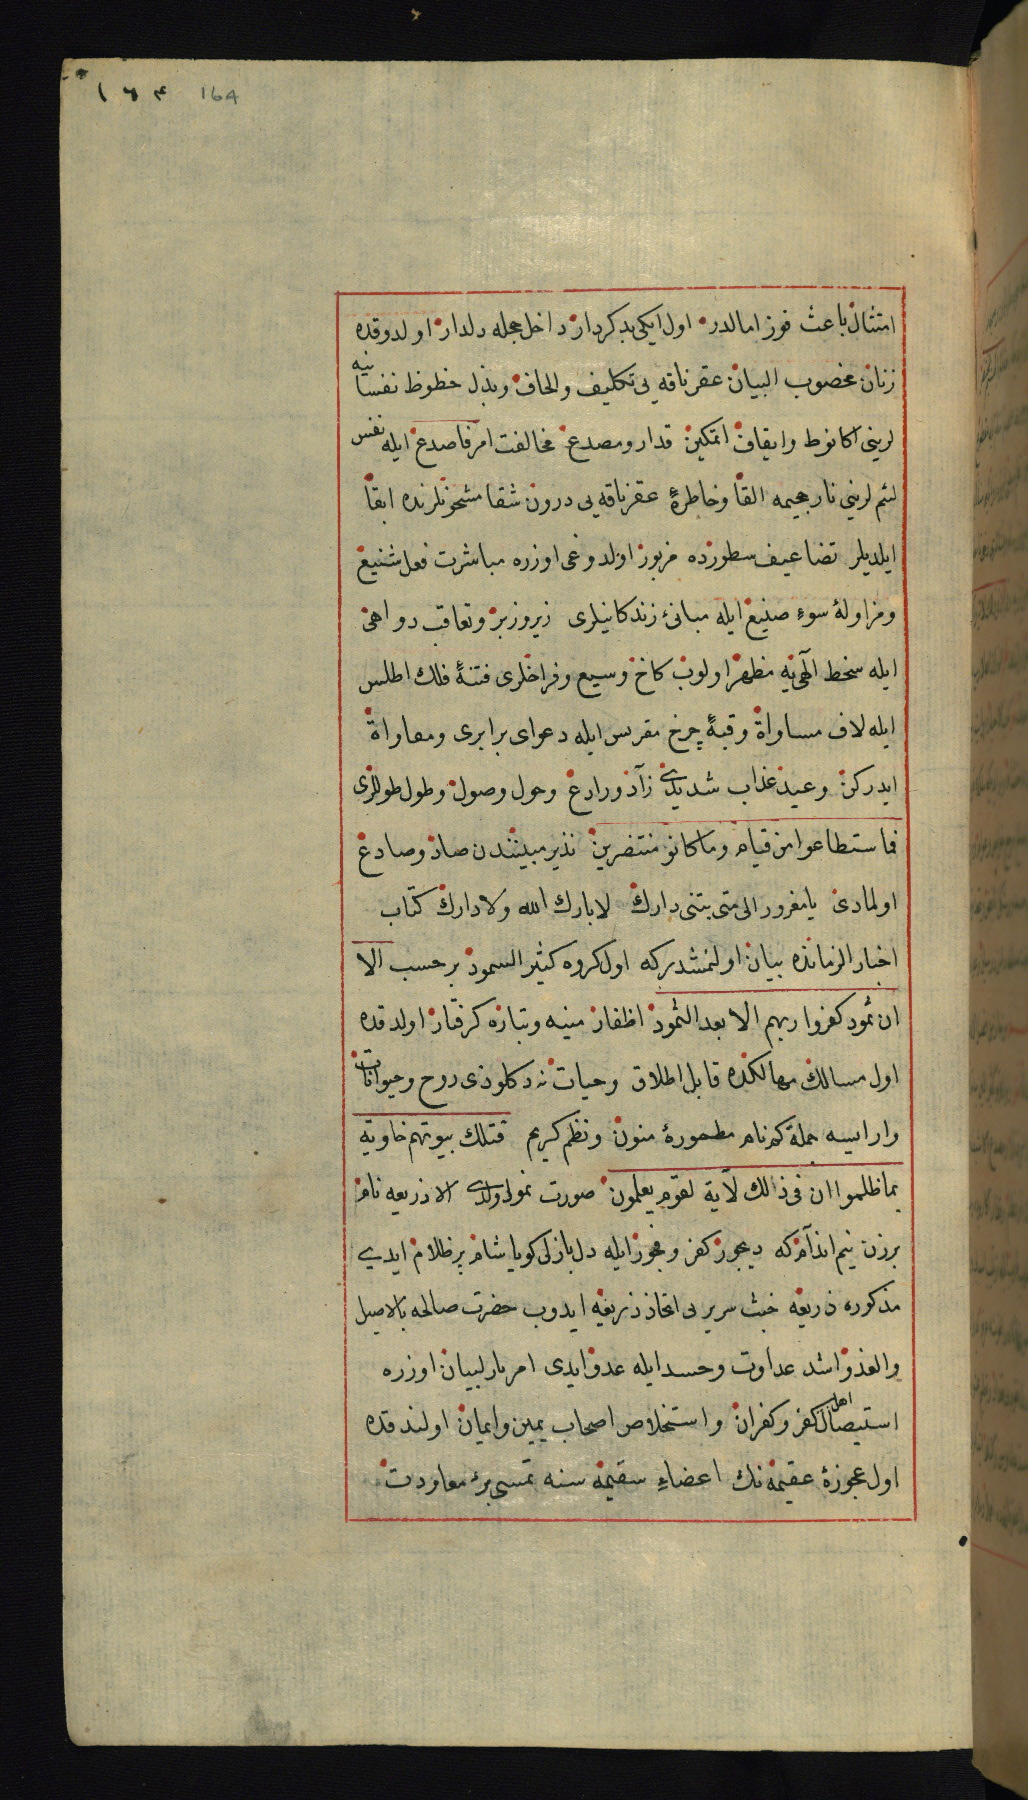 ١٦٤ 164
امتثال باعث فوز امالدر اول ایکی بدکردار داخل حجله دلدار اولدوقده
زنان مخضوب البیان عقر ناقه یی تکلیف والحاف وبذل حظوظ نفسانیه
لرینی اکا نوط وایقاف اتمکین قدار ومصدع مخالفت امر فاصدع ایله نفس
لئم لرینی نار جحیمه القا وخاطرهٔ عقر ناقه یی درون شقا مشحونلرنده ابقا
ایلدیلر تضاعیف سطورده مزبور اولدوغی اوزره مباشرت فعل شنیع
ومزاولهٔ سوء صنیع ایله مبانئ زندکانیلری زیروزبر وتعاقب دواهی
ایله سخط الٓهی یه مظهر اولوب کاخ وسیع وفراخلری فتنهٔ فلك اطلس
ایله لاف مساواة وقبهٔ چرخ مقرنس ایله دعوای برابری ومعاواة
ایدرکن وعید عذاب شدیدی زآد ورادع وحول وصول وطول طوللری
فما استطاعوا من قیام وما کانو منتصرین نذیر مبیندن صاد وصادع
اولمادی یا مغرور الی متی بتنی دارك لا بارك الله ولا دارك کتاب
اخبار الزمانده بیان اولنمشدرکه اول کروه کثیر السمود بر حسب الا
ان ثمود کفروا ربهم الا بعدا لثمود اظفار منیه وتباره کرفتار اولدقده
اول مسالك مهالکده قابل اطلاق وحیات نه دکلو ذی روح وحیوانات
وارایسه جمله کم نام مطمورهٔ منون ونظم کریم فتلك بیوتهم خاویة
بما ظلموا ان فی ذالك لآیة لقوم یعلمون صورت نمون اولدی الا ذریعه نام
برزن نیم اندآم که دیجور کفر وفجور ایله دل بازلی کویا شام پر ظلام ایدی
مذکوره ذریعه خبث سریر یی اتخاذ ذریعه ایدوب حضرت صالحه بالاصیل
والغدو اشد عداوت وحسد ایله عدو ایدی امر بارلبیان اوزره
استیصال اهل کفر وکفران واستخلاص اصحاب یمین وایمان اولندقده
اول عجوزهٔ عقیمه نك اعضاء سقیمه سنه تمسی برء معاودت